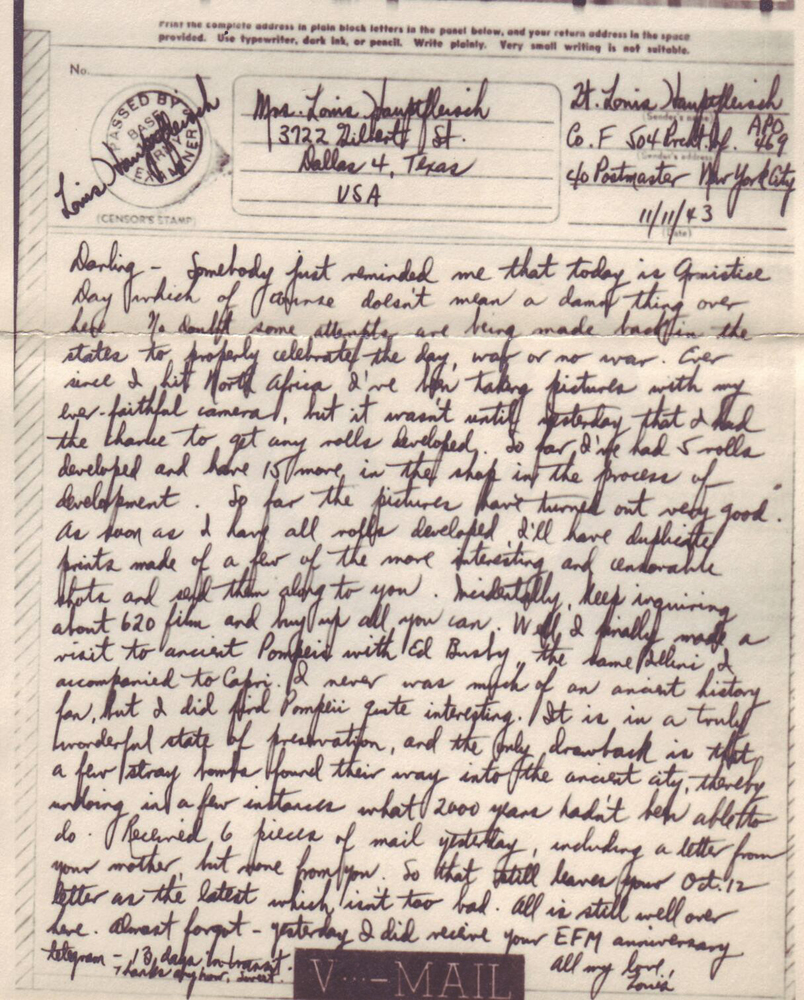 Print the complete address in plain block letters in the panel below, and your return address in the space
provided. Use typewriter, dark ink, or pencil. Write plainly. Very small writing is not suitable.
No.
PASSED BY
BASE
ARMY
EXAMINER
Louis Hauptfleisch
(CENSOR'S STAMP)
Mrs. Louis Hauptfleisch
3722 Gilbert St.
Dallas 4, Texas
USA
Lt. Louis Hauptfleisch
(Sender's name)
Co. F 504 Prcht. Inf. APO 469
(Sender's address)
c/o Postmaster New York City
11/11/43
(Date)
Darling – Somebody just reminded me that today is Armistice
Day which of course doesn't mean a damn thing over
here. No doubt some attempts are being made back in the
states to properly celebrate the day, war or no war. Ever
since I hit North Africa I've been taking pictures with my
ever-faithful camera, but it wasn't until yesterday that I had
the chance to get any rolls developed. So far I've had 5 rolls
developed and have 15 more in the shop in the process of
development. So far the pictures have turned out very good.
As soon as I have all rolls developed, I'll have duplicate
prints made of a few of the more interesting and censorable
shots and send them along to you. Incidentally, keep inquiring
about 620 film and buy up all you can. Well, I finally made a
visit to ancient Pompeii with Ed Busby, the same I
accompanied to Capri. I never was much of an ancient history
fan, but I did find Pompeii quite interesting. It is in a truly
wonderful state of preservation, and the only drawback is that
a few stray bombs found their way into the ancient city, thereby
undoing in a few instances what 2000 years hadn't been able to
do. Received 6 pieces of mail yesterday, including a letter from
your mother, but none from you. So that still leaves your Oct. 12
letter as the latest which isn't too bad. All is still well over
here. Almost forgot – yesterday I did receive your EFM anniversary
telegram – 13 days in transit.
Thanks anyhow, sweet.
All my love,
Louis
V···–MAIL